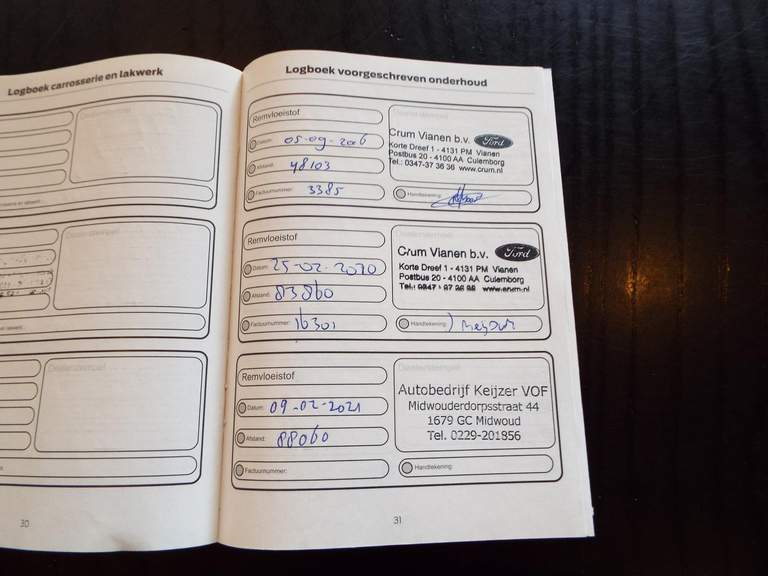 Logboek carrosserie en lakwerk
30
Logboek voorgeschreven onderhoud
Remvloeistof
Datum: 05-09-2016
Afstand: 48103
Factuurnummer: 3385
Crum Vianen b.v. Ford
Korte Dreef 1 - 4131 PM Vianen
Postbus 20 - 4100 AA Culemborg
Tel.: 0347-37 36 36 www.crum.nl
Handtekening:
Remvloeistof
Datum: 25-02-2020
Afstand: 83860
Factuurnummer: 16301
Crum Vianen b.v. Ford
Korte Dreef 1 - 4131 PM Vianen
Postbus 20 - 4100 AA Culemborg
Handtekening:
Remvloeistof
Datum: 09-02-2021
Afstand: 88060
Factuurnummer:
Autobedrijf Keijzer VOF
Midwouderdorpsstraat 44
1679 GC Midwoud
Tel. 0229-201856
Handtekening:
31